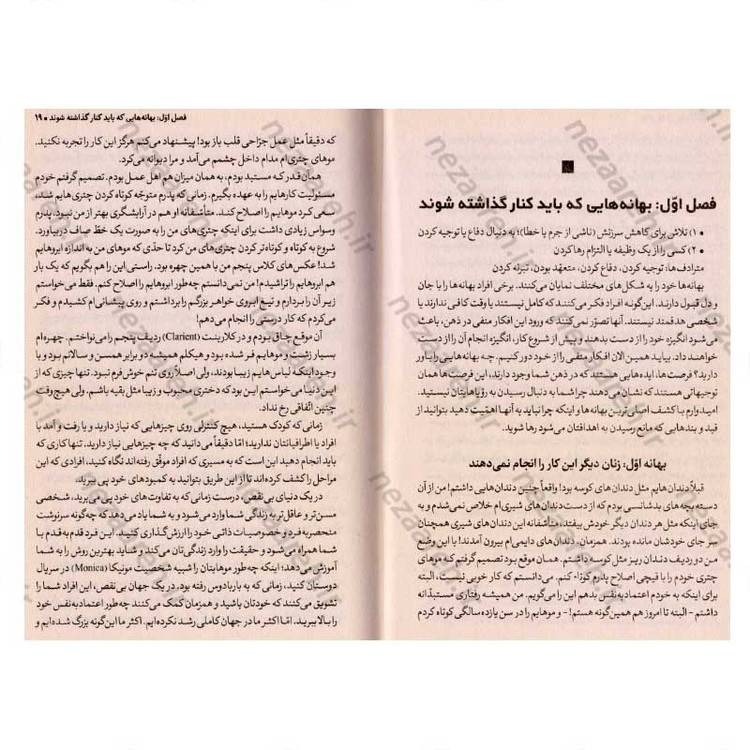 فصل اوّل: بهانه‌هایی که باید کنار گذاشته شوند
• ۱) تلاش برای کاهش سرزنش (ناشی از جرم یا خطا)؛ به دنبال دفاع یا توجیه کردن
• ۲) کسی را از یک وظیفه یا التزام رها کردن
مترادف‌ها: توجیه کردن، دفاع کردن، متعهّد بودن، تبرئه کردن
بهانه‌ها خود را به شکل‌های مختلف نمایان می‌کنند. برخی افراد بهانه‌ها را با جان
و دل قبول دارند. این‌گونه افراد فکر می‌کنند که کامل نیستند یا وقت کافی ندارند یا
شخصی هدفمند نیستند. آنها تصوّر نمی‌کنند که ورود این افکار منفی در ذهن، باعث
می‌شود انگیزه خود را از دست بدهند و پیش از شروع کار، انگیزه انجام آن را از دست
خواهند داد. بیایید همین الان افکار منفی را از خود دور کنیم. چه بهانه‌هایی را باور
دارید؟ فرصت‌ها، ایده‌هایی هستند که در ذهن شما وجود دارند، این فرصت‌ها همان
توجیهاتی هستند که نشان می‌دهند چرا شما به دنبال رسیدن به رؤیاهایتان نیستید.
امیدوارم با کشف اصلی‌ترین بهانه‌ها و اینکه چرا نباید به آنها اهمّیّت دهید بتوانید از
قید و بندهایی که مانع رسیدن به اهدافتان می‌شود رها شوید.
بهانه اوّل: زنان دیگر این کار را انجام نمی‌دهند
قبلاً دندان‌هایم مثل دندان‌های کوسه بود! واقعاً چنین دندان‌هایی داشتم! من از آن
دسته بچه‌های بدشانسی بودم که از دست دندان‌های شیری‌ام خلاص نمی‌شدم و به
جای اینکه مثل هر دندان دیگر خودش بیفتد، متأسّفانه این دندان‌های شیری همچنان
سر جای خودشان مانده بودند. همزمان، دندان‌های دایمی‌ام بیرون آمدند! با این وضع
من دو ردیف دندان ریز مثل کوسه داشتم. همان موقع بود تصمیم گرفتم که موهای
چتری خودم را با قیچی اصلاح پدرم کوتاه کنم. می‌دانستم که کار خوبی نیست، البته
برای اینکه به خودم اعتماد به نفس بدهم این را می‌گویم. من همیشه رفتاری مستبدّانه
داشتم - البته تا امروز هم همین‌گونه هستم! - و موهایم را در سن یازده سالگی کوتاه کردم
فصل اوّل: بهانه‌هایی که باید کنار گذاشته شوند • ۱۹
که دقیقاً مثل عمل جرّاحی قلب باز بود! پیشنهاد می‌کنم هرگز این کار را تجربه نکنید.
موهای چتری‌ام مدام داخل چشمم می‌آمد و مرا دیوانه می‌کرد.
همان‌قدر که مستبد بودم، به همان میزان هم اهل عمل بودم. تصمیم گرفتم خودم
مسئولیت کارهایم را به عهده بگیرم. زمانی که پدرم متوجّه کوتاه کردن چتری‌هایم شد،
سعی کرد موهایم را اصلاح کند. متأسّفانه او هم در آرایشگری بهتر از من نبود. پدرم
وسواس زیادی داشت برای اینکه چتری‌های من را به صورت یک خطّ صاف دربیاورد.
شروع به کوتاه و کوتاه‌تر کردن چتری‌های من کرد تا حدّی که موهای من به اندازه ابروهایم
شد! عکس‌های کلاس پنجم من با همین چهره بود. راستی این را هم بگویم که یک بار
هم ابروهایم را تراشیدم! من نمی‌دانستم چه‌طور ابروهایم را اصلاح کنم. فقط می‌خواستم
زیر آن را بردارم و تیغ ابروی خواهر بزرگم را برداشتم و روی پیشانی‌ام کشیدم و فکر
می‌کردم که کار درستی را انجام می‌دهم!
آن موقع چاق بودم و در کلارینت (Clarient) ردیف پنجم را می‌نواختم. چهره‌ام
بسیار زشت و موهایم فر شده بود و هیکلم همیشه دو برابر همسن و سالانم بود و با
وجود اینکه لباس‌هایم زیبا بودند، ولی اصلاً روی تنم خوش‌فرم نبود. تنها چیزی که از
این دنیا می‌خواستم این بود که دختری محبوب و زیبا مثل بقیه باشم. ولی هیچ‌وقت
چنین اتّفاقی رخ نداد.
زمانی که کودک هستید، هیچ کنترلی روی چیزهایی که نیاز دارید و یا رفت و آمد با
افراد یا اطرافیانتان ندارید! امّا دقیقاً می‌دانید که چه چیزهایی نیاز دارید. تنها کاری که
باید انجام دهید این است که به مسیری که افراد موفّق رفته‌اند نگاه کنید، افرادی که این
مراحل را کشف کرده‌اند تا از این طریق بتوانید به کمبودهای خود پی ببرید.
در یک دنیای بی‌نقص، درست زمانی که به تفاوت‌های خود پی می‌برید، شخصی
مسن‌تر و عاقل‌تر به زندگی شما وارد می‌شود و به شما یاد می‌دهد که چه‌گونه سرنوشت
منحصر به فرد و خصوصیات ذاتی خود را ارزش‌گذاری کنید. این فرد قدم به قدم با
شما همراه می‌شود و حقیقت را وارد زندگی‌تان می‌کند و شاید بهترین روش را به شما
آموزش می‌دهد؛ اینکه چه‌طور موهایتان را شبیه شخصیت مونیکا (Monica) در سریال
دوستان کنید، زمانی که به باربادوس رفته بود. در یک جهان بی‌نقص، این افراد شما را
تشویق می‌کنند که خودتان باشید و همزمان کمک می‌کنند چه‌طور اعتماد به نفس خود
را بالا ببرید. امّا اکثر ما در جهان کاملی رشد نکرده‌ایم. اکثر ما این‌گونه بزرگ شده‌ایم و
nezaamieh.ir